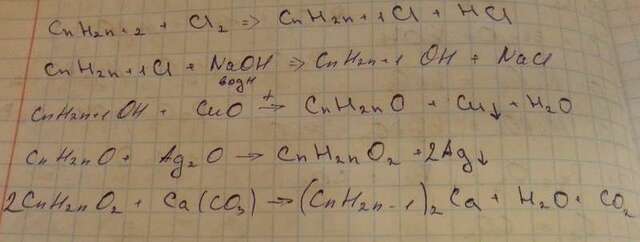 CnH2n+2 + Cl2 => CnH2n+1Cl + HCl
CnH2n+1Cl + NaOH => CnH2n+1 OH + NaCl
водн
CnH2n+1OH + CuO t→ CnH2nO + Cu↓ + H2O
CnH2nO + Ag2O → CnH2nO2 + 2Ag↓
2CnH2nO2 + Ca(CO3) → (CnH2n-1)2Ca + H2O + CO2